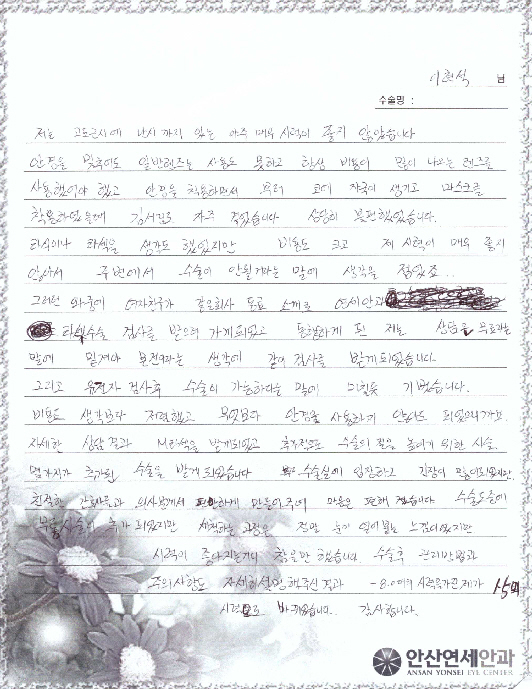 이현석 님
수술명 :
저는 고도근시에 난시까지 있는 아주 매우 시력이 좋지 않았습니다
안경을 맞춰도 일반렌즈는 사용도 못하고 항상 비용이 많이 나오는 렌즈를
사용했어야 했고 안경을 착용하면서 코에 자국이 생기고 마스크를
착용하였을때 김서림도 자주 있었습니다 상당히 불편했었습니다.
라식이나 라섹을 생각도 했었지만 비용도 크고 제 시력이 매우 좋지
않아서 주변에서 수술이 안될거라는 말에 생각을 접었죠...
그러던 와중에 여자친구가 같은회사 동료 소개로 연세안과
라섹수술 검사를 받으러 가게되었고 동행하게 된 저는 상담은 무료라는
말에 밑져야 본전이라는 생각에 같이 검사를 받게되었습니다
그리고 유전자 검사후 수술이 가능하다는 말에 미칠듯 기뻤습니다.
비용도 생각보다 저렴했고 무엇보다 안경을 사용하지 않아도 되었으니까요.
자세한 상담결과 M라섹을 받게되었고 추가적으로 수술의 질을 높이기 위한 시술
몇가지가 추가된 수술을 받게 되었습니다 수술실에 입장하고 긴장이 많이되었지만
친절한 간호사분과 의사분께서 편안하게 만들어주어 마음은 편해졌습니다 수술도중에
시술이 추가 되었지만 세척하는 과정은 정말 눈이 얼어붙는 느낌이었지만
시력이 좋아지는거니 참을만 했습니다 수술후 관리방법과
주의사항도 자세히설명해주신 결과 -8.0에의 시력을가진제가 1.5의
시력으로 바뀌었습니다. 감사합니다.
안산연세안과
ANSAN YONSEI EYE CENTER